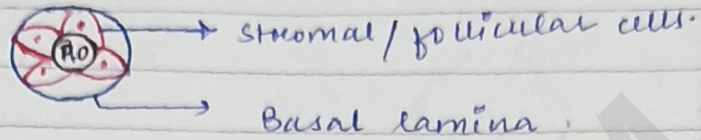 PO
stromal / follicular cells.
Basal lamina.